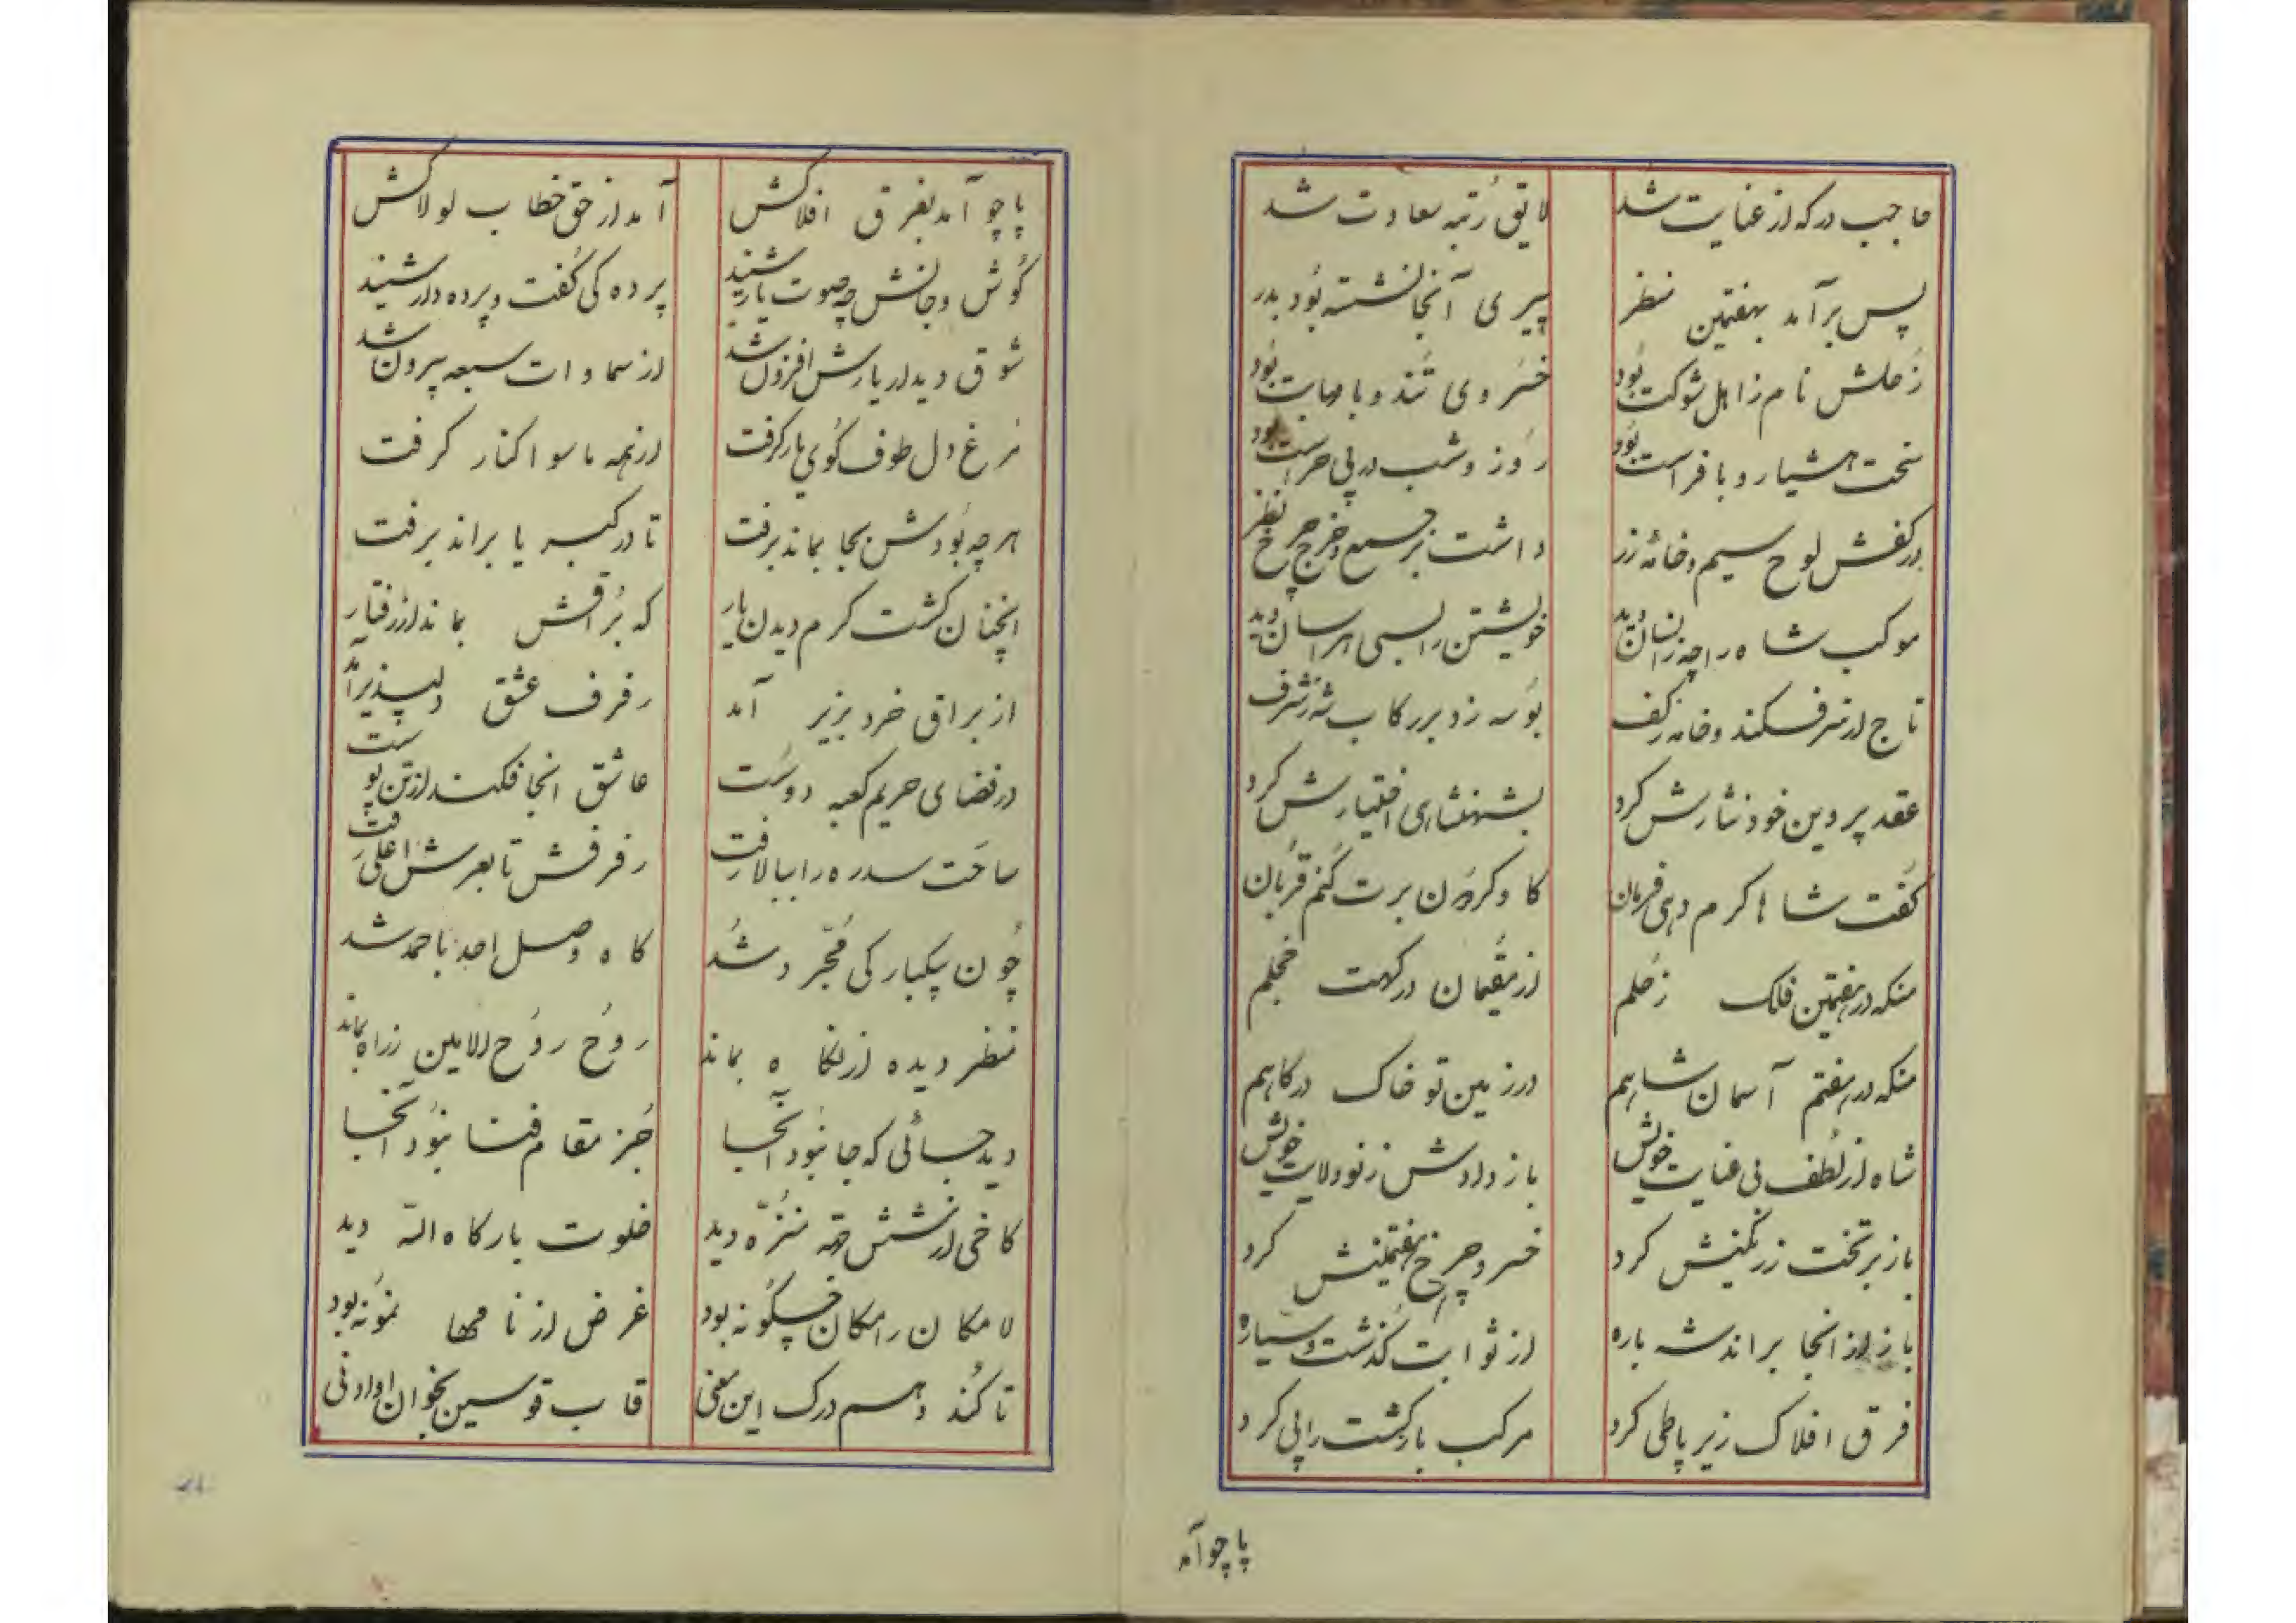 حاجب درکه از عنایت شد لایق رتبه سعادت شد
پس برآمد بهفتمین منظر پیری آنجا نشسته بود بدر
زحلش نام ز اهل شوکت بود خسروی تند و با مهابت بود
سخت هشیار و با فراست بود روز و شب در پی حراست بود
در کفش لوح سیم و خامهٔ زر داشت بر جمع و خرج چرخ نظر
موکب شاه را چه زانسان دید خویشتن را بسی هراسان دید
تاج از سر فکند و خامه ز کف بوسه زد بر رکاب شه ز شرف
عقد پروین خود نثارش کرد بشهنشاهی اختیارش کرد
کفت شاها کرم دهی فرمان کاو کردون برت کنم قربان
منکه در هفتمین فلک زحلم از مقیمان درکهت خجلم
منکه در هفتم آسمان شاهم در زمین تو خاک درکاهم
شاه از لطف بی عنایت خویش باز دادش ز نو ولایت خویش
باز بر تخت زر نکینش کرد خسرو چرخ هفتمینش کرد
باز از انجا براند شه باره از ثوابت کذشت و سیاره
فرق افلاک زیر پا طی کرد مرکب بازکشت را پی کرد
پاچو آمد
پاچو آمد بفرق افلاکش آمد از حق خطاب لولاکش
کوش و جانش چه صوت یار شنید پرده کی کفت و پرده دار شنید
شوق دیدار یارش افزون شد از سماوات سبعه بیرون شد
مرغ دل طوف کوی یار کرفت از همه ماسوا کنار کرفت
هر چه بودش بجا بماند برفت تا در کبریا براند برفت
انچنان کشت کرم دیدن یار که براقش بماند از رفتار
از براق خرد بزیر آمد رفرف عشق دلپذیر آمد
در فضای حریم کعبه دوست عاشق انجا فکند از تن پوست
ساحت سدره را ببالا رفت رفرفش تا بعرش اعلی رفت
چون بیکبارکی مجرد شد کاه وصل احد باحمد شد
منظر دیده از نکاه بماند روح روح الامین ز راه بماند
دید جائی که جا نبود آنجا جز مقام فنا نبود آنجا
کاخی از شش جهة منزه دید خلوت بارکاه الله دید
لا مکان را مکان چکونه بود غرض از نامها نمونه بود
تا کند وهم درک این معنی قاب قوسین بخوان او ادنی